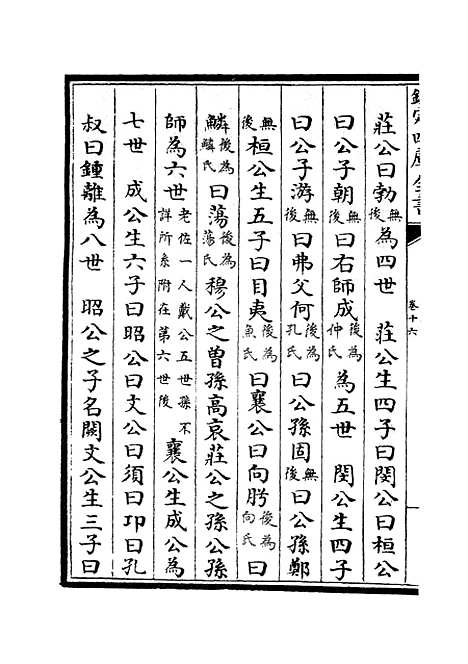 欽定四庫全書
卷十六
莊公曰勃無後為四世　莊公生四子曰閔公曰桓公
曰公子朝無後曰右師成後為仲氏為五世　閔公生四子
曰公子游無後曰弗父何後為孔氏曰公孫固無後曰公孫鄭
無後桓公生五子曰目夷後為魚氏曰襄公曰向肹後為向氏曰
鱗後為鱗氏曰蕩後為蕩氏穆公之曽孫高哀莊公之孫公孫
師為六世老佐一人戴公五世孫不詳所系附在第六世後襄公生成公為
七世　成公生六子曰昭公曰文公曰須曰卭曰孔
叔曰鍾離為八世　昭公之子名闕文公生三子曰